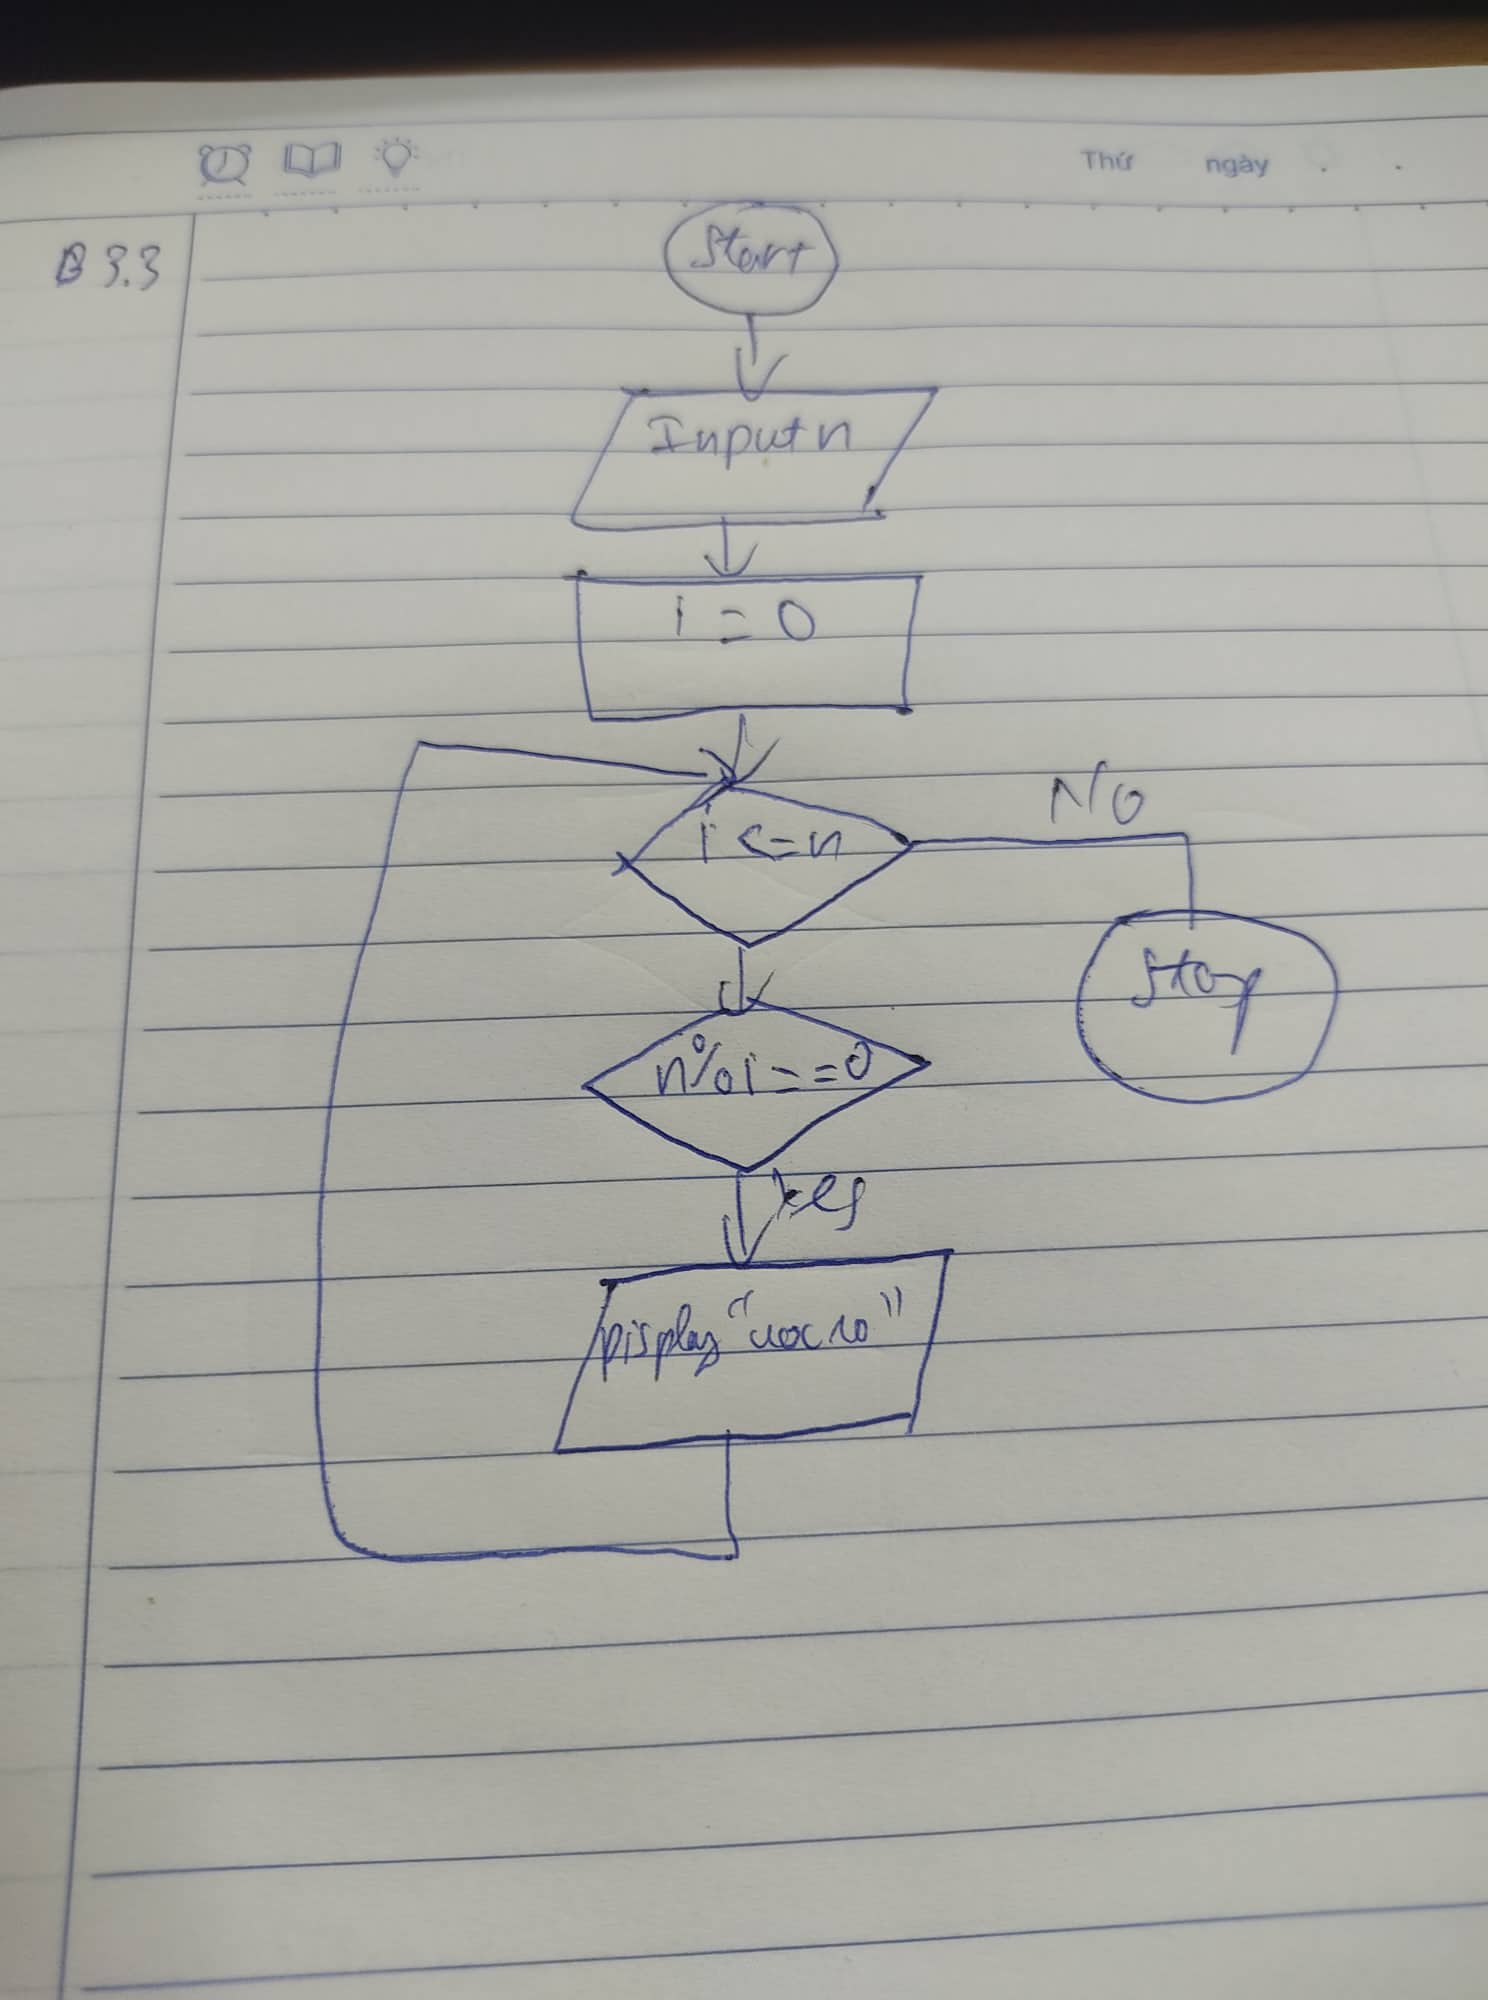 Thứ ngày
B 3.3
Start
Input n
i = 0
i <= n
No
Stop
n%i==0
Yes
Display "